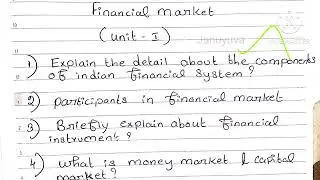 Financial market
(unit - I)
1) Explain the detail about the components
of indian financial system?
2) participants in financial market
3) Briefly explain about financial
instrument?
4) what is money market & capital
market?